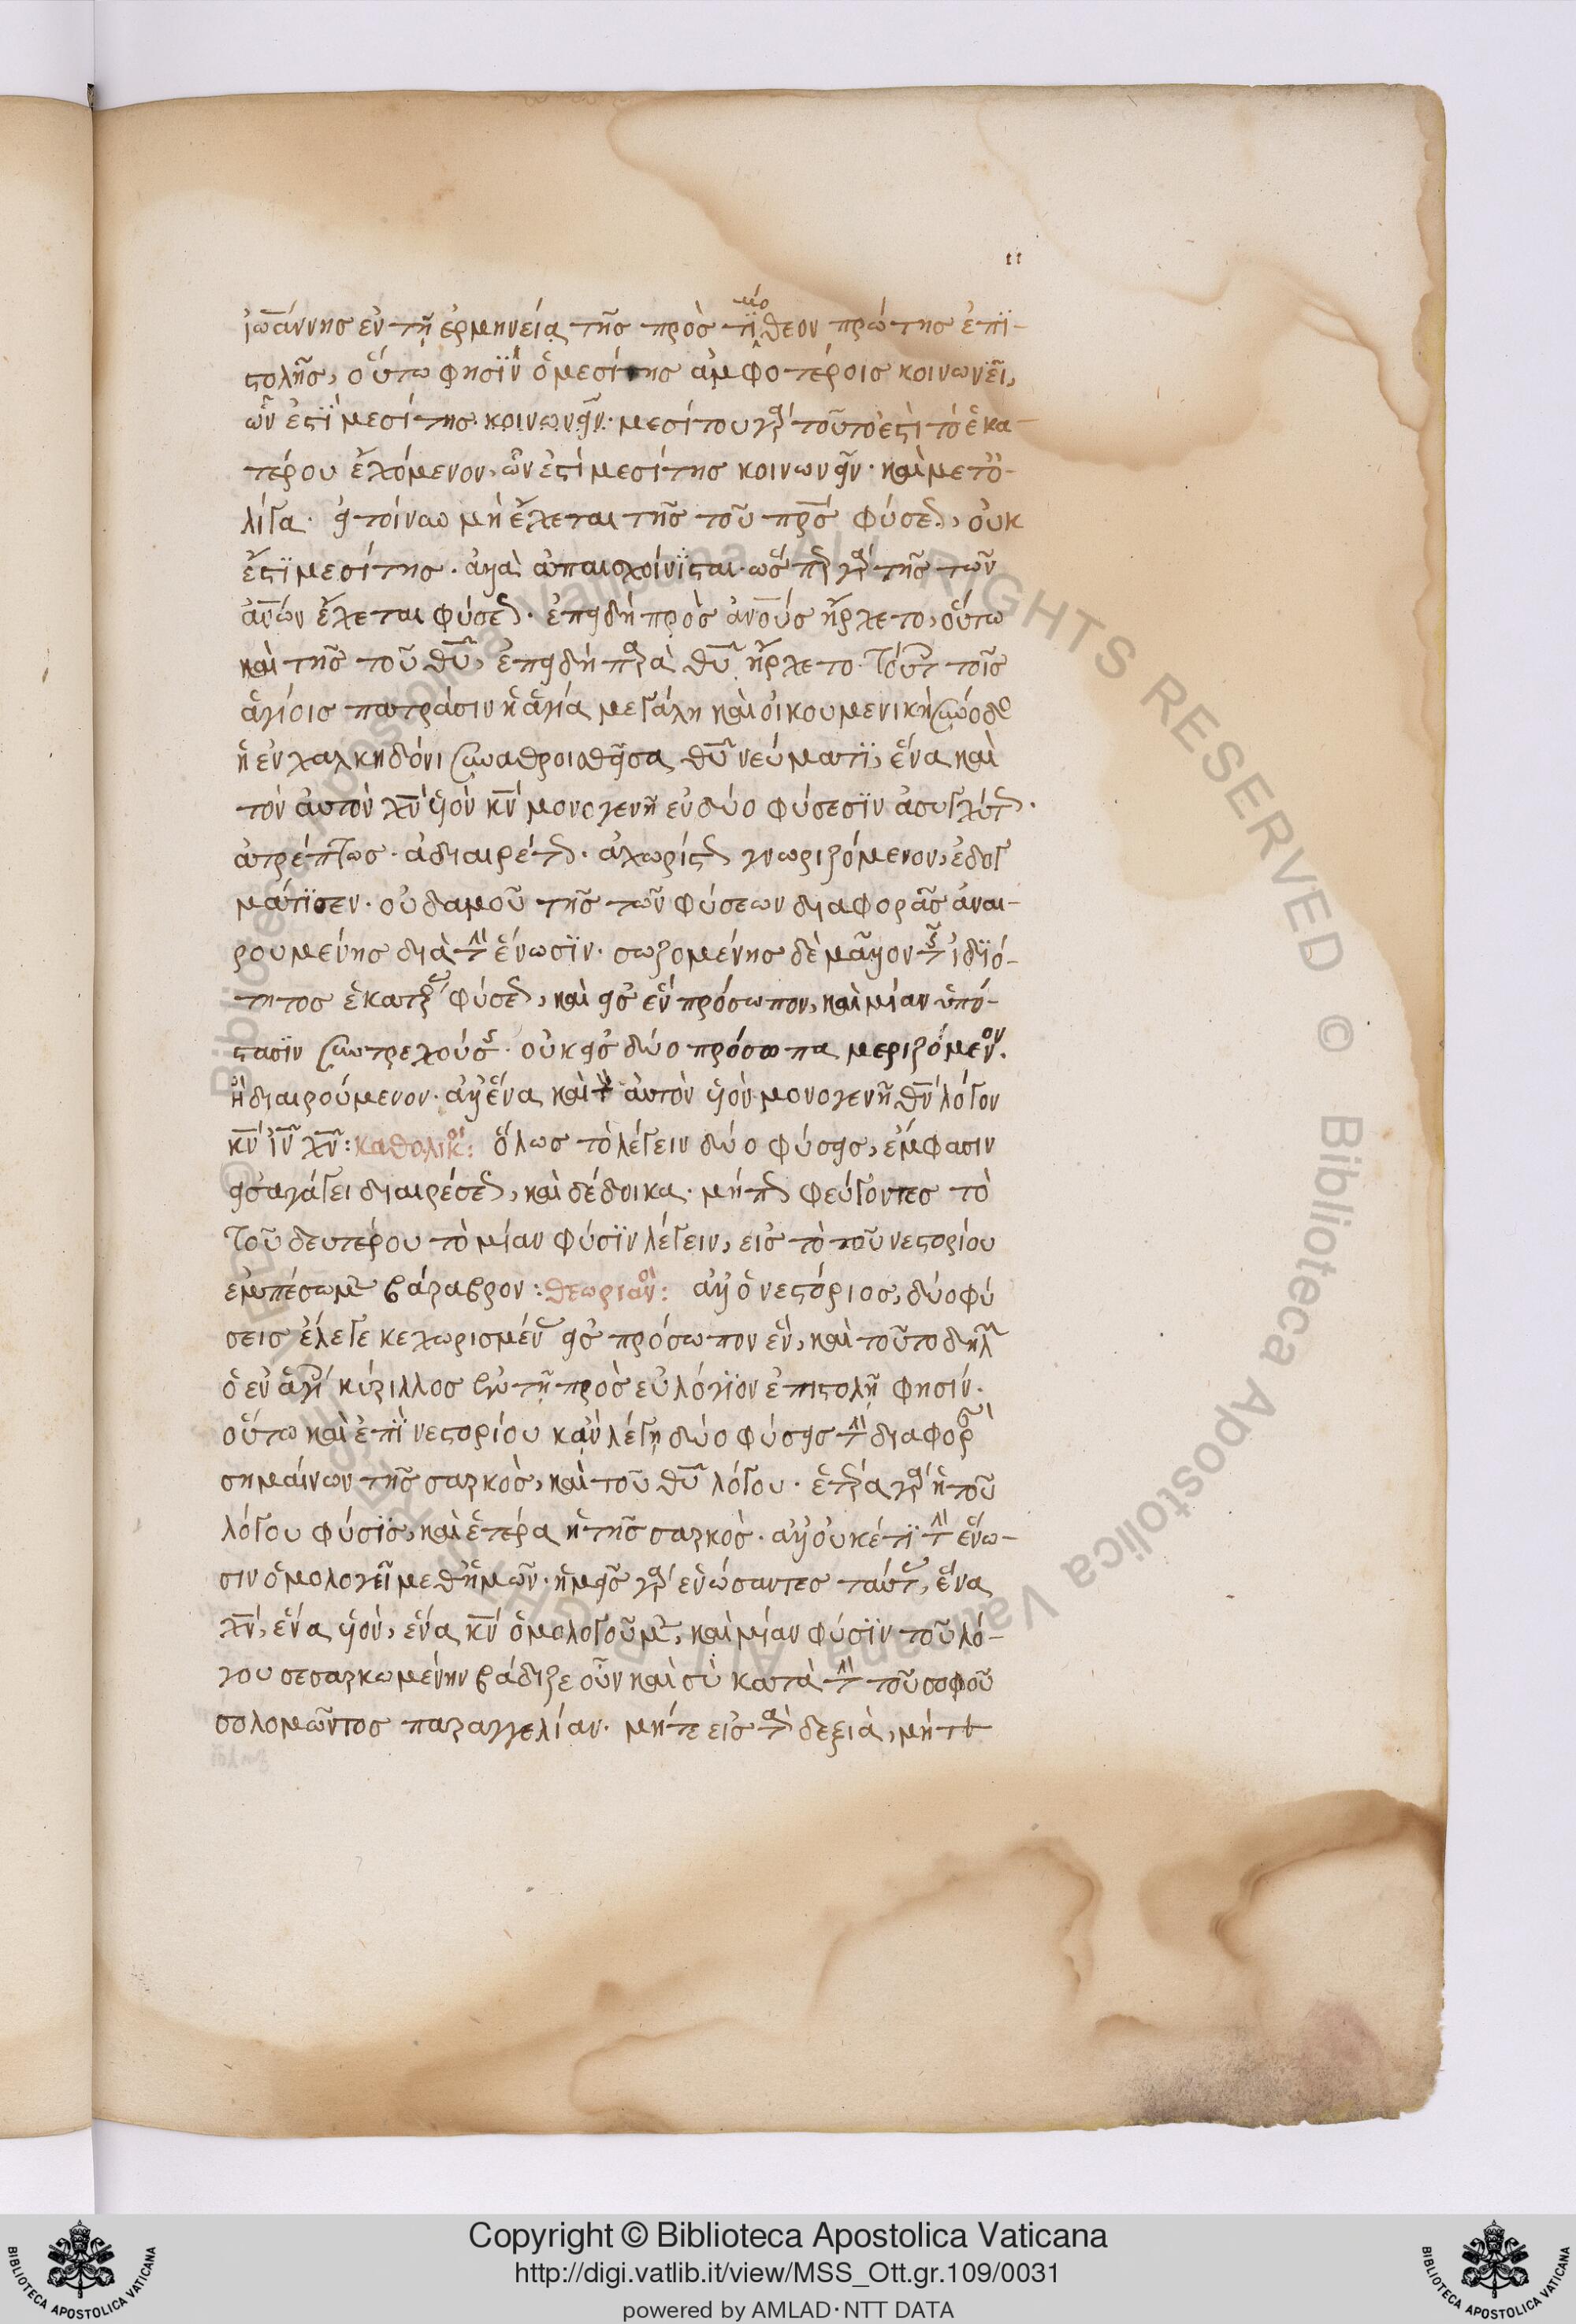 11
ἰωάννης ἐν τῇ ἑρμηνείᾳ τῆς πρὸς τϊμόθεον πρώτης ἐπϊ-
στολῆς, οὕτω φησΐν· ὁ μεσίτης ἀμφοτέροις κοινωνεῖ,
ὧν ἐστΐ μεσίτης κοινωνεῖν· μεσίτου γὰρ τοῦτό ἐστι τὸ ἑκα-
τέρου ἐχόμενον, ὧν ἐστὶ μεσίτης κοινωνεῖν· καὶ μετ' ὀ-
λίγα· εἰ τοίνυν μὴ ἔχεται τῆς τοῦ πρς φύσεως, οὐκ
ἔστϊ μεσίτης· ἀλλὰ ἀπαισχοίνϊσται· ὥσπερ γὰρ τῆς τῶν
ἀνων ἔχεται φύσεως· ἐπειδὴ πρὸς ἀνους ἤρχετο, οὕτω
καὶ τῆς τοῦ θυ, ἐπειδὴ παρὰ θυ ἤρχετο. Τούτοις τοῖς
ἁγίοις πατράσιν ἡ ἁγία μεγάλη καὶ οἰκουμενικὴ σύνοδος
ἡ ἐν χαλκηδόνι συναθροισθεῖσα θυ νεύματϊ, ἕνα καὶ
τὸν αὐτὸν χν υἱὸν κν μονογενῆ ἐν δύο φύσεσϊν ἀσυγχύτως·
ἀτρέπτως· ἀδιαιρέτως· ἀχωρίστως γνωριζόμενον, ἐδογ
μάτϊσεν· οὐδαμοῦ τῆς τῶν φύσεων διαφορᾶς ἀναι-
ρουμένης διὰ τὴν ἕνωσϊν· σωζομένης δὲ μᾶλλον τῆς ἰδϊό-
τητος ἑκατέρας φύσεως, καὶ εἰς ἓν πρόσωπον, καὶ μίαν ὑπό-
στασϊν συντρεχούσης· οὐκ εἰς δύο πρόσωπα μεριζόμενον·
ἢ διαιρούμενον· ἀλλ' ἕνα καὶ τὸν αὐτὸν υἱὸν μονογενῆ θν λόγον
κν ιν χν: καθολικοί: ὅλως τὸ λέγειν δύο φύσεις, ἔμφασιν
εἰσαγάγει διαιρέσεως, καὶ δέδοικα· μήπως φεύγοντες τὸ
Τοῦ δευτέρου τὸ μίαν φύσϊν λέγειν, εἰς τὸ τοῦ νεστορίου
ἐμπέσωμεν βάραθρον: θεωριανός: ἀλλ' ὁ νεστόριος, δύο φύ
σεις ἔλεγε κεχωρισμένας εἰς πρόσωπον ἕν, καὶ τοῦτο δηλῶν
ὁ ἐν ἁγίοις κύριλλος ἐν τῇ πρὸς εὐλόγϊον ἐπιστολῇ φησίν·
οὕτω καὶ ἐπὶ νεστορίου κἂν λέγῃ δύο φύσεις τὴν διαφορὰν
σημαίνων τῆς σαρκὸς, καὶ τοῦ θυ λόγου· ἑτέρα γὰρ ἡ τοῦ
λόγου φύσϊς, καὶ ἑτέρα ἡ τῆς σαρκὸς· ἀλλ' οὐκέτϊ τὴν ἕνω-
σιν ὁμολογεῖ μεθ' ἡμῶν· ἡμεῖς γὰρ ἑνώσαντες ταύτας, ἕνα
χν, ἕνα υἱὸν, ἕνα κν ὁμολογοῦμεν, καὶ μίαν φύσϊν τοῦ λό-
γου σεσαρκωμένην βάδιζε οὖν καὶ σὺ κατὰ τὴν τοῦ σοφοῦ
σολομῶντος παραγγελίαν· μήτε εἰς τὰ δεξιὰ, μήτε
© Biblioteca Apostolica Vaticana ALL RIGHTS RESERVED
© Biblioteca Apostolica Vaticana ALL RIGHTS RESERVED
Copyright © Biblioteca Apostolica Vaticana
http://digi.vatlib.it/view/MSS_Ott.gr.109/0031
powered by AMLAD·NTT DATA
BIBLIOTECA APOSTOLICA VATICANA
BIBLIOTECA APOSTOLICA VATICANA